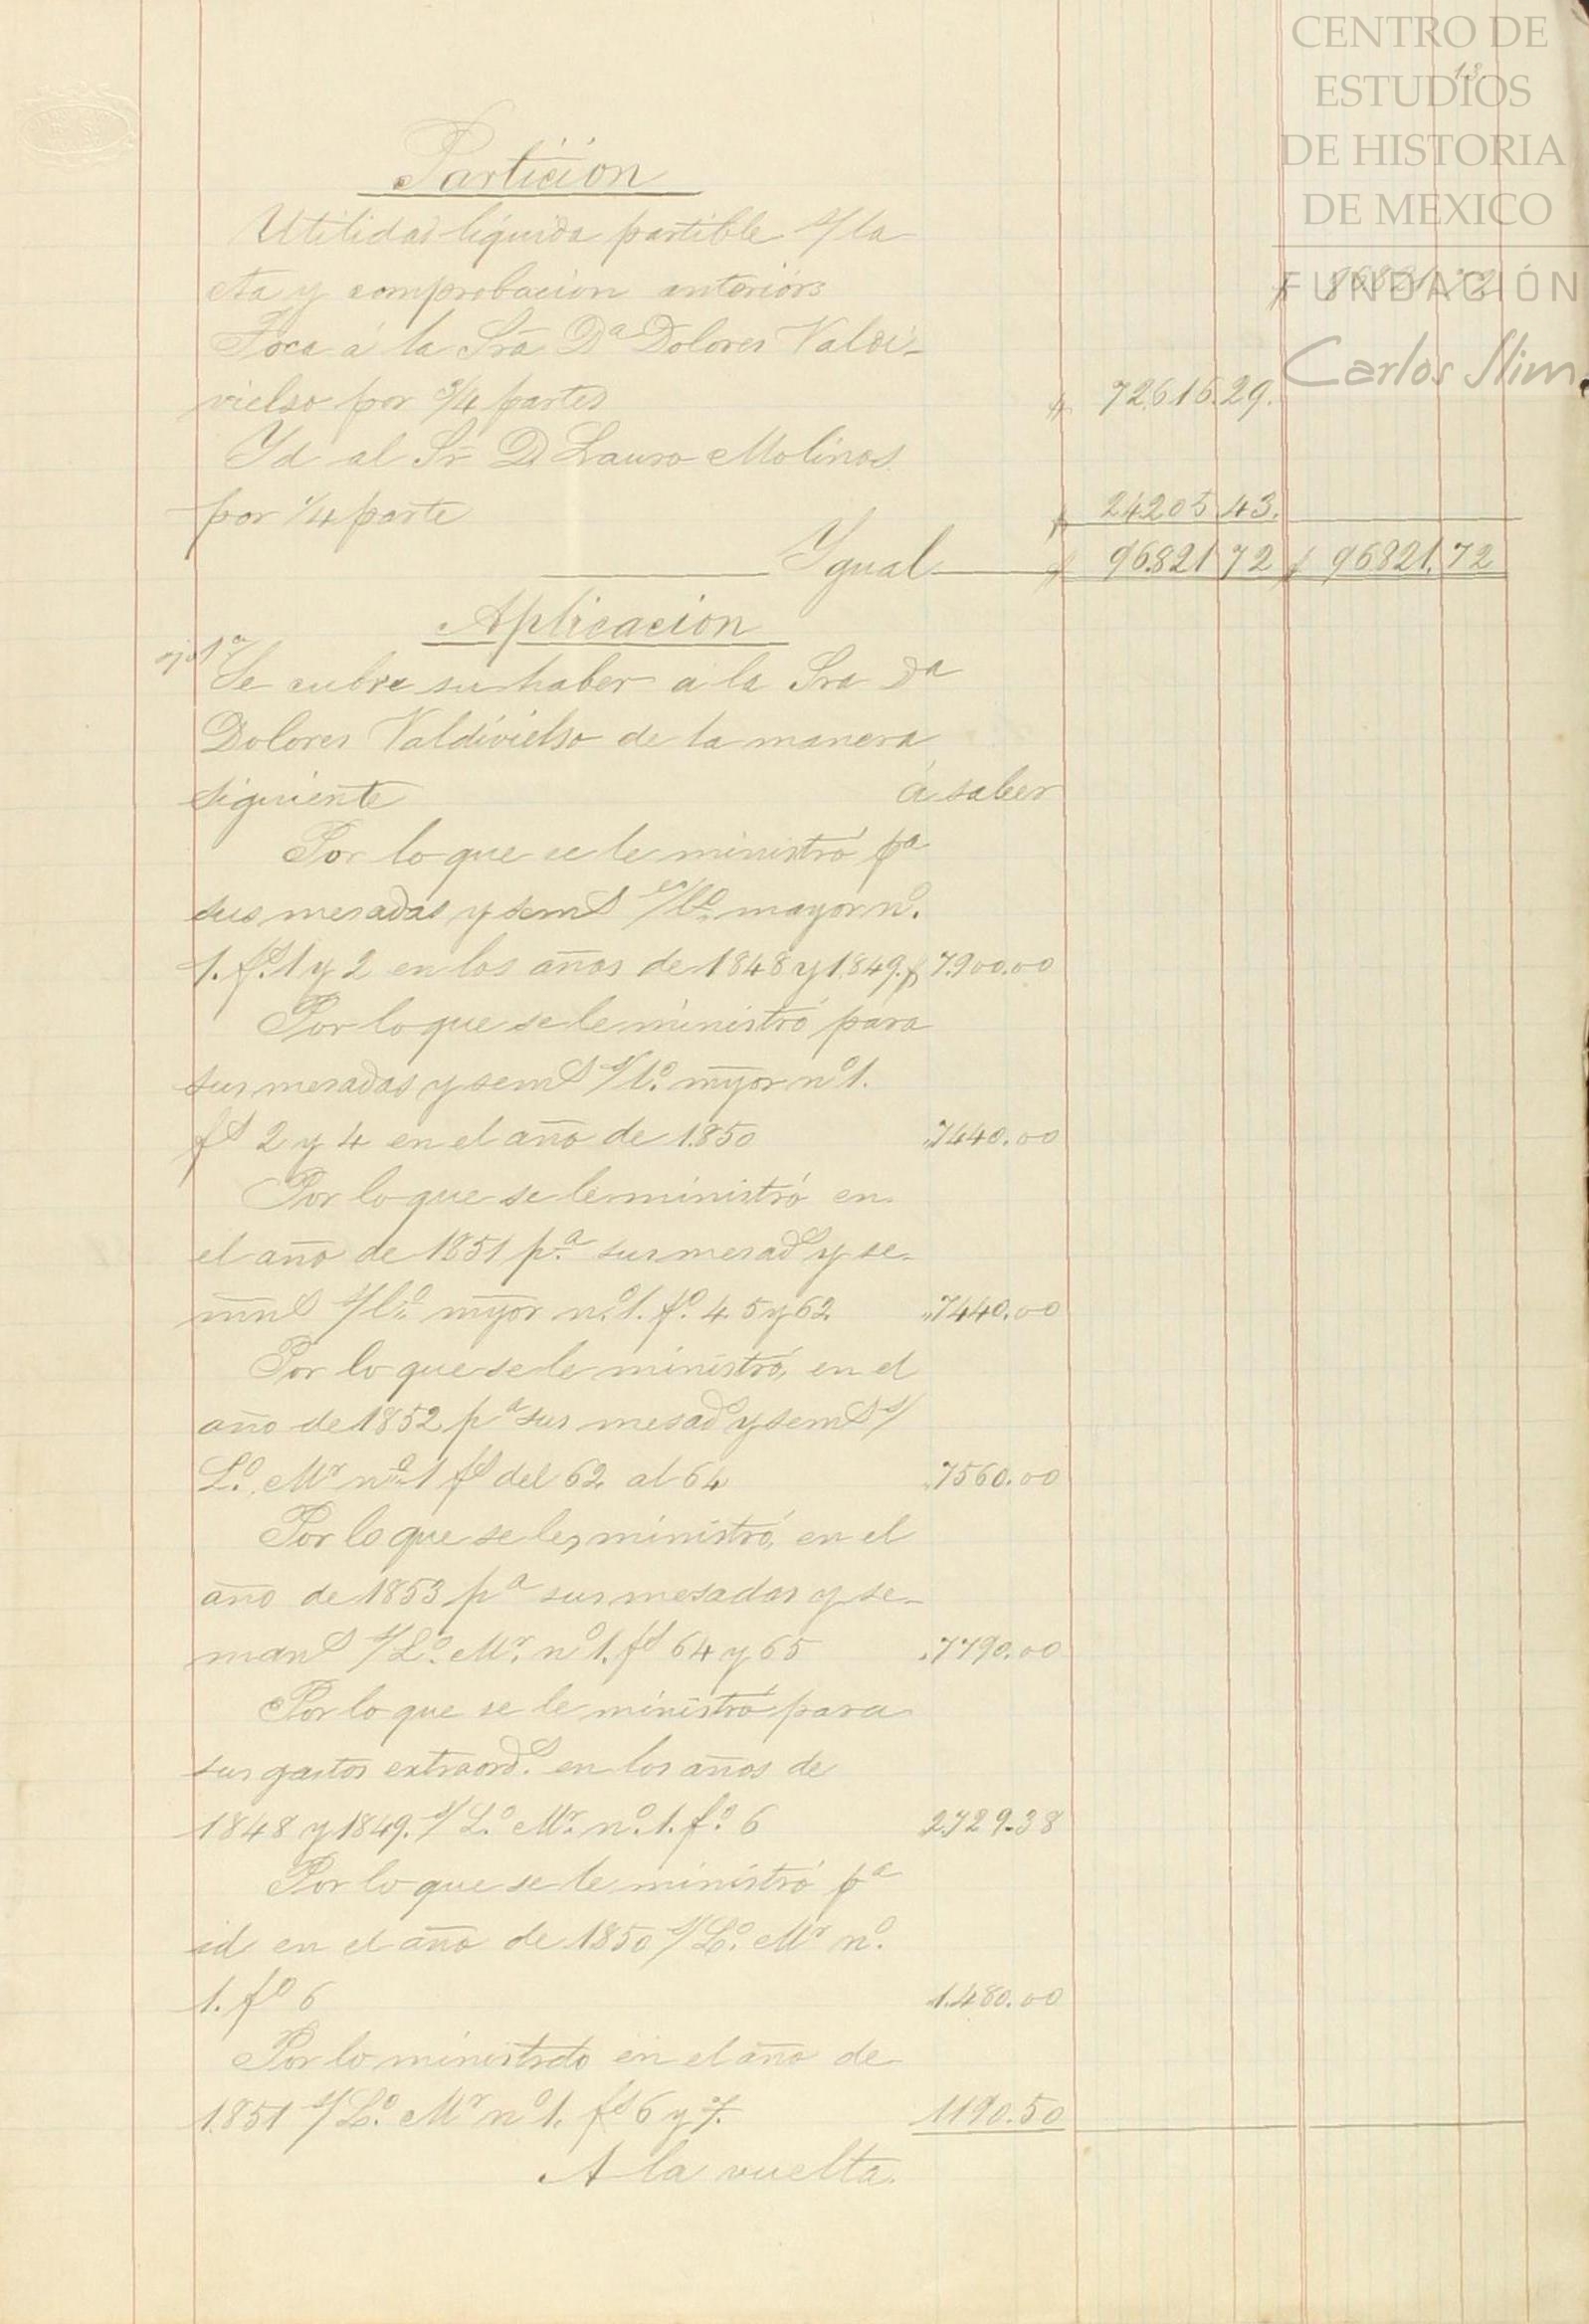 CENTRO DE
ESTUDIOS
DE HISTORIA
DE MEXICO
FUNDACIÓN
Carlos Slim
13
Particion
Utilidad líquida partible s/ la
cta y comprobacion anteriors $ 96821.72
Toca á la Sra Da Dolores Valdi-
vielso por 3/4 partes $ 72.616.29.
Yd al Sr D Lauro Molinos
por 1/4 parte $ 24205.43.
Ygual $ 96821.72 $ 96821.72
Aplicacion
1a
Se cubre su haber a la Sra Da
Dolores Valdivielso de la manera
siguiente á saber
Por lo que se le ministró pa
sus mesadas y sems s/ lo mayor no.
1. fs. 1 y 2 en los años de 1848 y 1849. $ 7.900.00
Por lo que se le ministró para
sus mesadas y sems s/ lo. myor no 1.
fs 2 y 4 en el año de 1.850 " 7440.00
Por lo que se le ministró en
el año de 1851 pa sus mesads y se-
mns s/ lo myor no. 1. fo. 4. 5 y 62. " 7440.00
Por lo que se le ministró, en el
año de 1852 pa sus mesads y sems s/
Lo. Mr no 1 fs del 62 al 64 " 7560.00
Por lo que se le, ministró, en el
año de 1853 pa sus mesadas y se-
mans s/ Lo. Mr. no 1. fs 64 y 65 " 7790.00
Por lo que se le ministró para
sus gastos extraords. en los años de
1848 y 1849. s/ Lo. Mr. no. 1. fo. 6 2.729.38
Por lo que se le ministró pa
id en el año de 1850 s/ Lo. Mr no.
1. fo 6 1.480.00
Por lo ministrado en el año de
1.851 s/ Lo. Mr no 1. fs 6 y 7. 1190.50
A la vuelta.